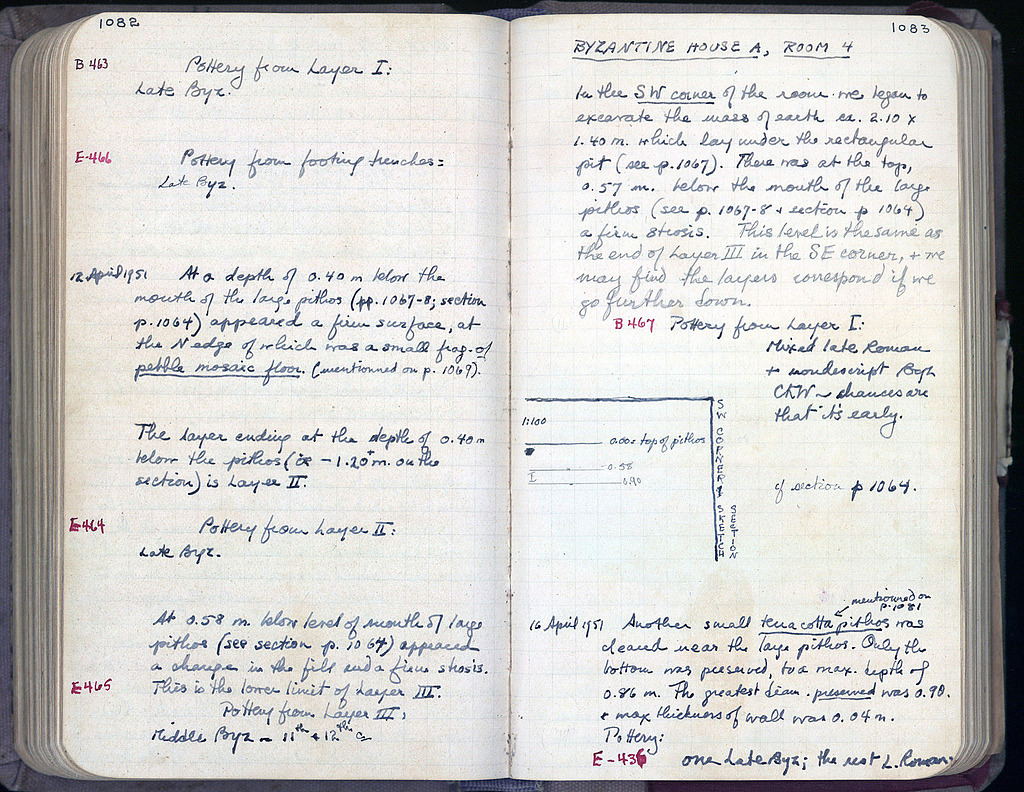 1082
B 463 Pottery from Layer I:
Late Byz.
E-466 Pottery from footing trenches:
Late Byz.
12 April 1951 At a depth of 0.40 m below the
mouth of the large pithos (pp. 1067-8; section
p. 1064) appeared a firm surface, at
the N edge of which was a small frag. of
pebble mosaic floor. (mentionned on p. 1069).
The layer ending at the depth of 0.40 m
below the pithos (ie -1.20 m. on the
section) is Layer II.
E-464 Pottery from Layer II:
Late Byz.
At 0.58 m. below level of mouth of large
pithos (see section p. 1064) appeared
a change in the fill and a firm stosis.
E-465 This is the lower limit of Layer III.
Pottery from Layer III:
Middle Byz – 11th + 12th c
1083
BYZANTINE HOUSE A, ROOM 4
In the SW corner of the room we began to
excavate the mass of earth ca. 2.10 x
1.40 m. which lay under the rectangular
pit (see p. 1067). There was at the top,
0.57 m. below the mouth of the large
pithos (see p. 1067-8 + section p 1064)
a firm stosis. This level is the same as
the end of Layer III in the SE corner, + we
may find the layers correspond if we
go further down.
B 467 Pottery from Layer I:
Mixed late Roman
+ nondescript Byz
CRW – chances are
that it's early.
1:100
0.00 = top of pithos
-0.58
I
0.90
SW CORNER SKETCH
SECTION
cf section p 1064.
mentionned on
p. 1081
16 April 1951 Another small terracotta pithos was
cleared near the large pithos. Only the
bottom was preserved, to a max. depth of
0.86 m. The greatest diam. preserved was 0.90.
+ max thickness of wall was 0.04 m.
Pottery:
E-436 one Late Byz; the rest L. Roman.